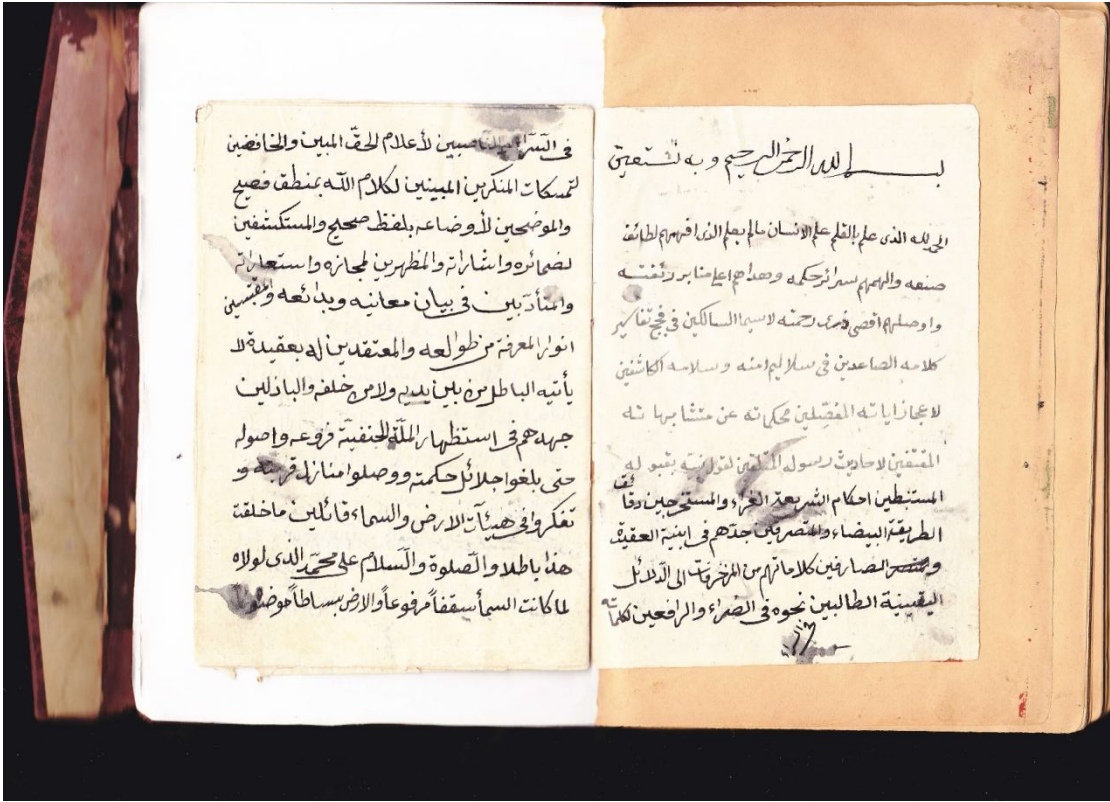 بسم الله الرحمن الرحيم وبه نستعين
الحمد لله الذى علم بالقلم علم الانسان مالم يعلم الذى افهمهم لطائف
صنعه والهمهم سرائر حكمه وهداهم اعلى منابر رائفته
واوصلهم اقصى ذرى رحمته لاسيما السالكين فى فجج تفاسير
كلامه الصاعدين فى سلاليم امنه وسلامه الكاشفين
لاعجاز اياته المفصّلين محكماته عن متشابهاته
المقتفين لاحاديث رسوله المتلقين لقوله بقبوله
المستنبطين احكام الشريعة الغراء والمستخرجين دقائق
الطريقة البيضاء والمتصرفين جدّهم فى ابنية العقيدة
الصارفين كلاماتهم من المزخرفات الى الدلائل
اليقينية الطالبين نحوه فى الضراء والرافعين لكلماته
فى السّراء الناصبين لأعلام الحقّ المبين والخافضين
لتمسكات المنكرين المبينين لكلام اللّه بمنطق فصيح
والموضحين لأوضاعه بلفظ صحيح والمستكشفين
لضمائره واشاراته والمظهرين لمجازه واستعاراته
والمتأدّبين فى بيان معانيه وبدائعه والمقتبسين
انوار المعرفة من طوالعه والمعتقدين له بعقيدة لا
يأتيه الباطل من بين يديه ولا من خلفه والباذلين
جهدهم فى استظهار الملّة الحنفيّة فروعه واصوله
حتى بلغوا جلائل حكمته ووصلوا منازل قربته و
تفكروا فى هيئآت الارض والسماء قائلين ما خلقت
هذا باطلا والصّلوة والسّلام على محمّد الذى لولاه
لما كانت السمأ سقفاً مرفوعاً والارض بساطاً موضوعا